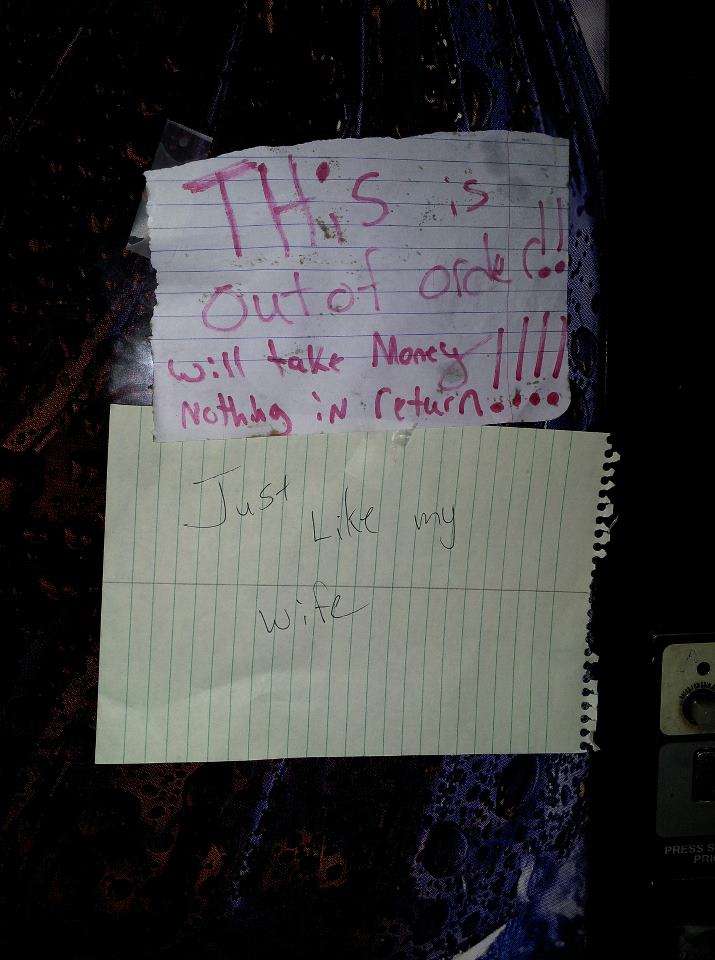 THiS is
out of order!!
will take Money
Nothing in return!!!!
Just
Like my
wife
PRESS S
PRI